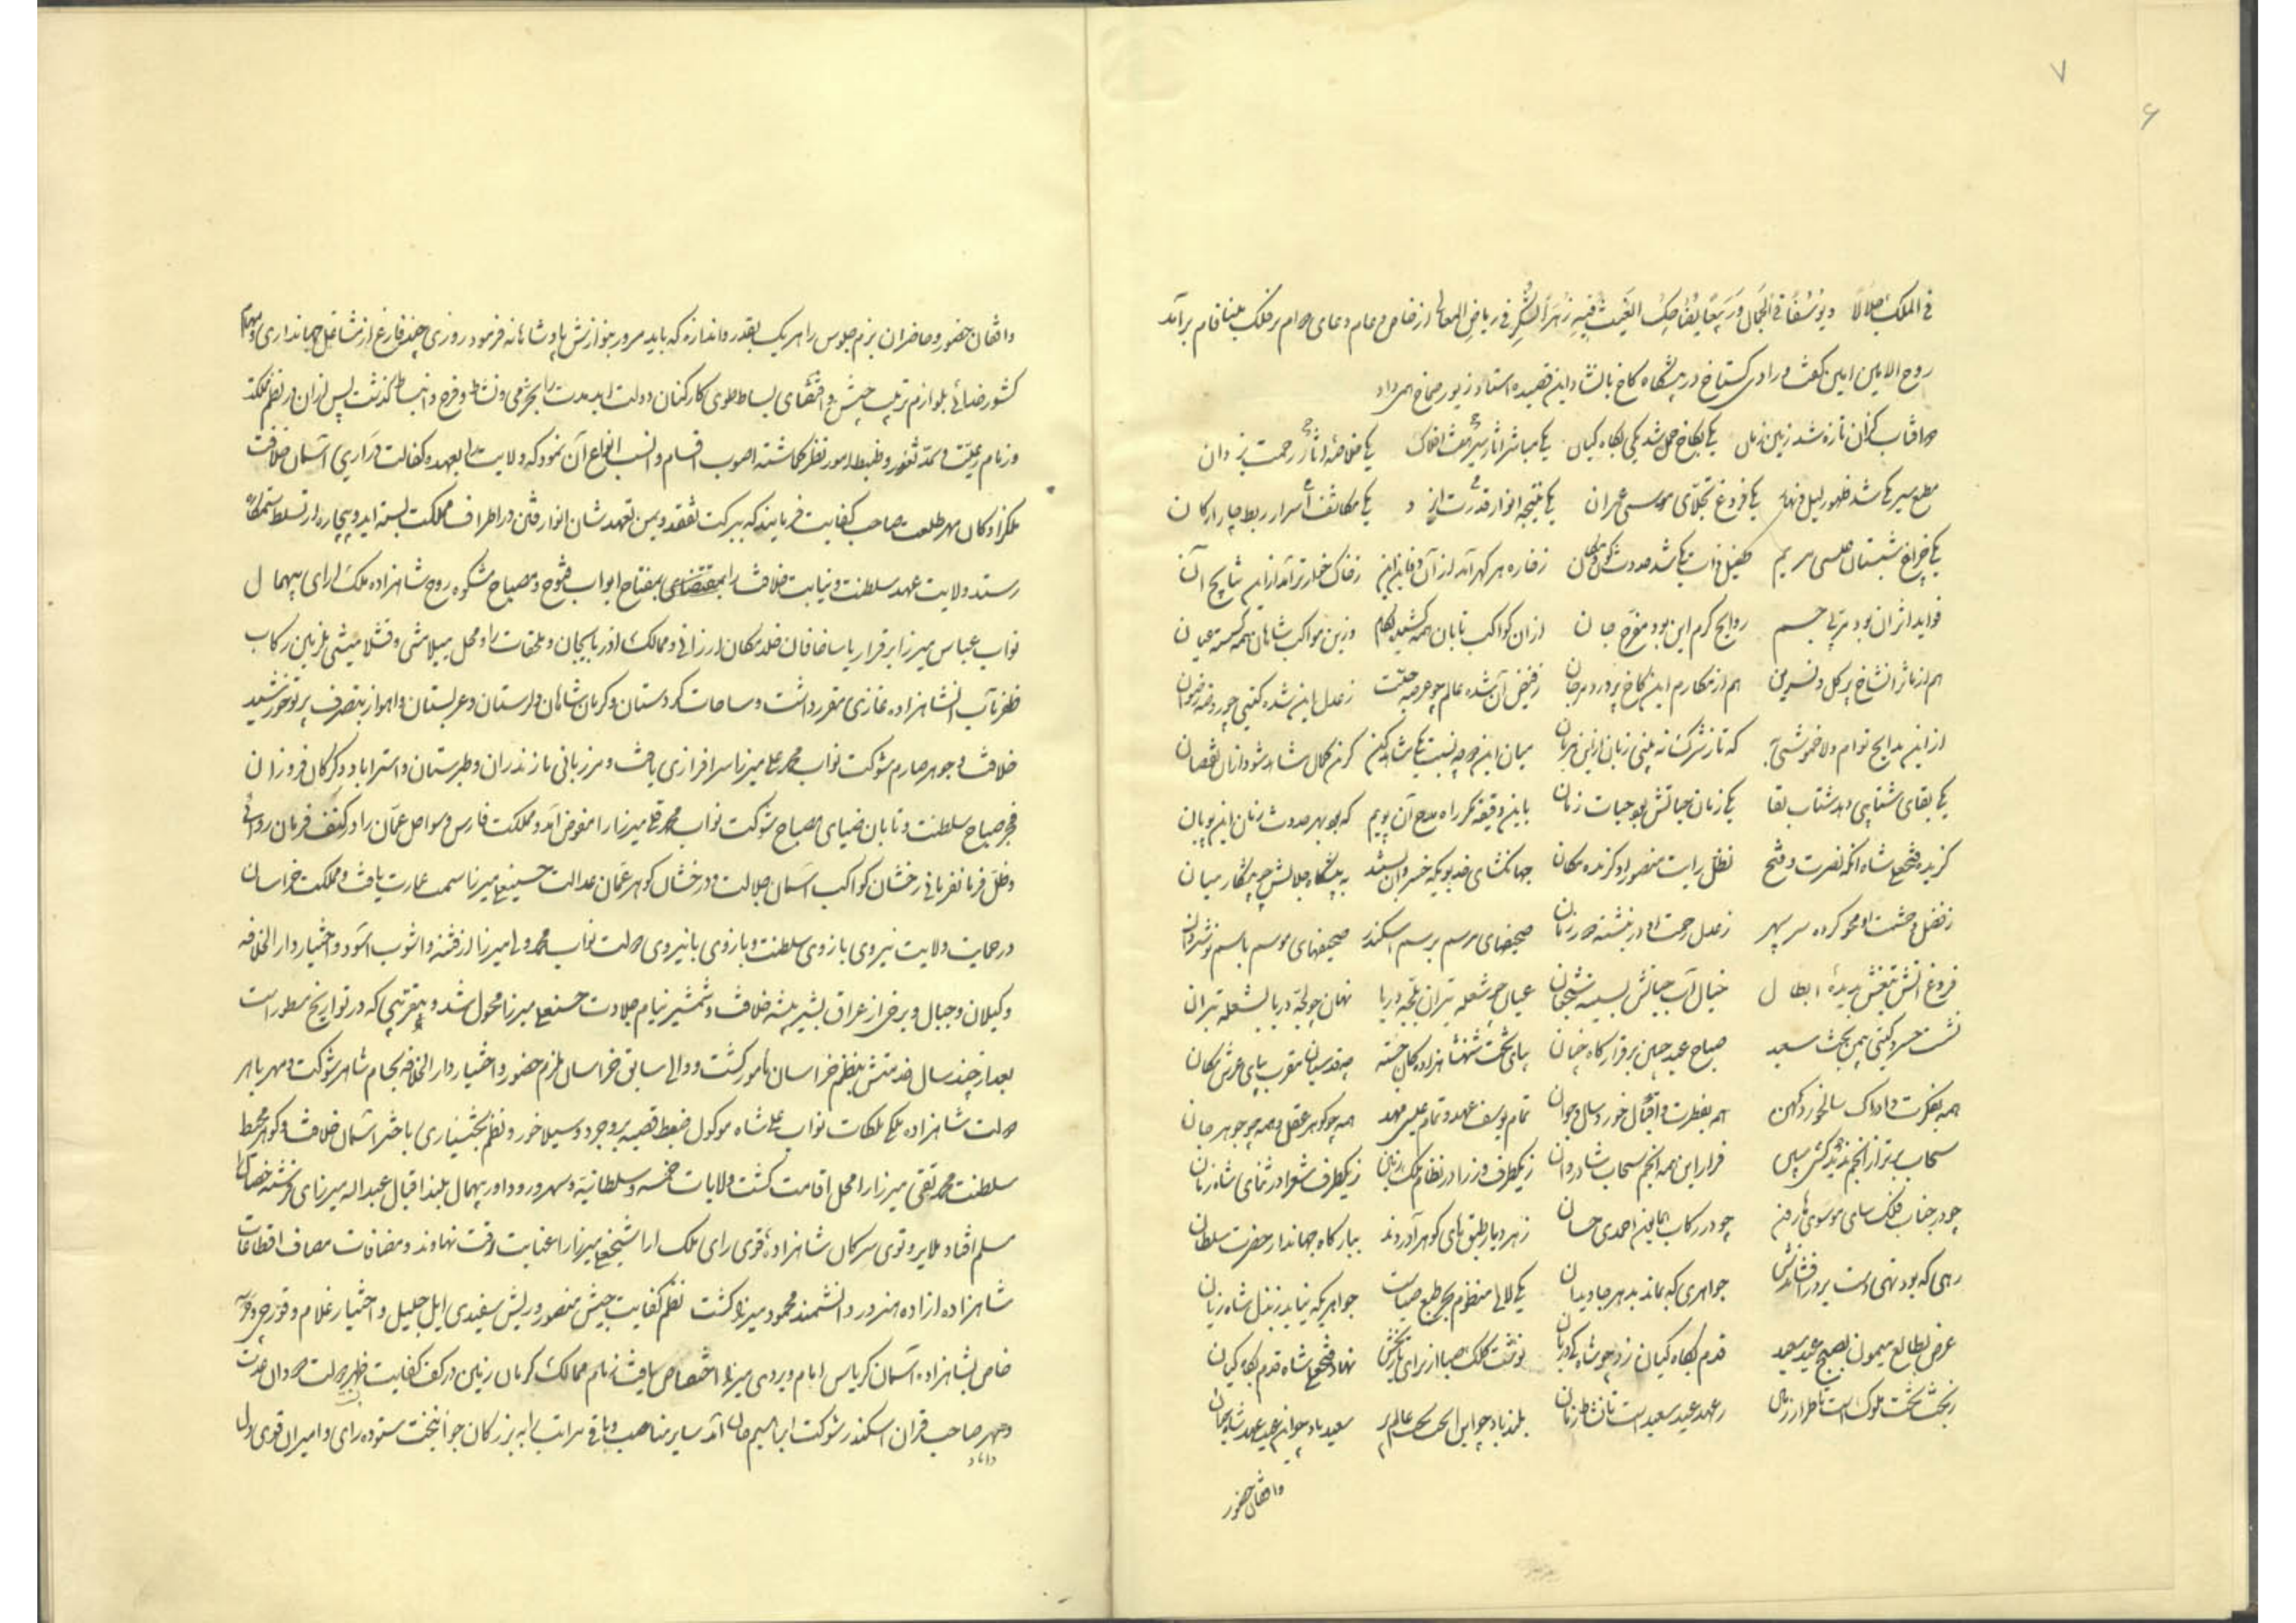 ۷
۶
فی الملک جلالاً و یوسفاً فی الجمال و ربیعاً یضاحک الغیث فیه زهر الشکر فی ریاض المعالی از خاص و عام دعای دوام بر فلک مینافام برآمد
روح الامین امین گفت و رادی گستاخ در پیشگاه کاخ بانشاد این قصیده استاد زیور صماخ همی داد
دو آفتاب کزان تازه شد زمین و زمان یکی بکاخ حمل شد یکی بگاه کیان یکی مباشر آثار سیر هفت افلاک یکی خلاصه آثار رحمت یزدان
مطیع سیر یکی شد ظهور لیل و نهار یکی فروغ تجلای موسی عمران یکی نتیجه انوار قدرت ایزد یکی مکاشف اسرار ربط چار ارکان
یکی چراغ شبستان عیسی مریم طفیل ذات یکی شد حدوث کون و مکان ز خاره هر گهر آمد از آن و فاید این ز خاک خمار تر آمد از این نتایج آن
فواید اثر آن بود مربی جسم روایح کرم این بود مفرح جان از آن کواکب تابان همه کشیده لگام وزین مواکب شاهان همه گسسته عنان
هم از مآثر آن شاخ پر گل و نسرین هم از مکارم این کاخ پر در و مرجان ز فیض آن شده عالم چو عرصه جنت ز عدل این شده گیتی چو روضه رضوان
از این مدایح توام دلا خموشی به که تا ز شرک نه بینی زبان ازین هزیان میان این دو چه نسبت یکی شاید کین گزین کمال شاد شود از آن نقصان
یکی بقای شتابی دهد شتاب بقا یکی زمان حیاتش بود حیات زمان باین دقیقه مگر راه مدح آن پویم که بود بهر حدوث زمان این پویان
گزیده فتحعلی شاه آنکه نصرت و فتح بظل رایت منصور او گزیده مکان جهانگشای خدیویکه خسروان بستند به پیشگاه جلالش چو پیشکار میان
ز فضل و حشمت او محو کرده سر سپهر ز عدل و رحمت او در نبشته دور زمان صحیفهای مرسم برسم اسکندر صحیفهای موسم باسم نوشروان
فروغ آتش تیغش بدیده ابطال خیال آب حیاتش بسینه شجعان عیان چو شعله نیران بلجه دریا نهان چو لجه دریا بشعله نیران
نشست خسرو گیتی بیمن بخت سعید صباح عید چنین بر فراز گاه چنان بپای تخت شهنشاهزادگان خجسته چو قدسیان مقرب بپای عرش مکان
همه بفکرت و ادراک سالخورد و کهن همه بفطرت و اقبال خورد سال و جوان تمام یوسف عهد و تمام عیسی مهد همه چو گوهر عقل و همه چو جوهر جان
سحاب برتر از انجم ندید کس پس فراز این همه انجم سحاب شادروان زیکطرف وزرا در نظام ملک زمین زیکطرف شعرا در ثنای شاه زمان
چو در جناب فلک سای موسوی هارون چو در رکاب همایون احمدی حسان زهر دیار طبقهای گوهر آوردند ببارگاه جهاندار حضرت سلطان
رهی که بود تهی دست بر در افشاندش جواهری که بماند بدهر جاویدان یکی لالی منظوم بحر طبع صباست جواهریکه نیاید ز بذل شاه زیان
غرض بطالع میمون بصبح عید سعید قدم بگاه کیان زد چو شاه ملک ستان نوشت کلک صبا از برای تاریخش نهاد فتحعلی شاه قدم بگاه کیان
ز بخت تخت ملوک است تا طراز زمان ز عهد عید سعید است تا نشاط زمان بلند باد چو این تخت عالم گیر سعید باد چو این عید عهد شاه جهان
واقفان حضور
واقفان حضور و حاضران بزم جلوس را هر یک بقدر و اندازه که باید مرور بنوازش پادشاهانه فرمود روزی چند فارغ از مشاغل جهانداری و مهام
کشور خدائی بلوازم ترتیب جشن و اقتضای بساط طوی کارکنان دولت ابد مدت را بخرمی و نشاط و فرح و انبساط گذشت پس از آن در نظم مملکت
و زمام رعیت و سد ثغور و ضبط امور نظر گماشته اصوب اقسام و انسب انواع آن نمود که ولایت را بعهده و کفالت دراری آسمان خلافت
ملکزادگان مهر طلعت صاحب کفایت فرمایند که ببرکت تفقد و یمن تعهد شان انوار فتن در اطراف مملکت بسته آید و بیچاره از تسلط ستمکاره
رستد ولایت عهد سلطنت و نیابت خلافت را بمقتضای بمفتاح ابواب فتوح و مصباح مشکوه روح شاهزاده ملک آرای بیهمال
نواب عباس میرزا برقرار یاسا خاقان خلد مکان ارزانی و ممالک آذربایجان و ملحقات را و محل ییلامشی و قشلامیشی ملازمین رکاب
ظفر مآب آن شاهزاده غازی مقرر داشت و ساحات کردستان و کرمانشاهان و لرستان و عربستان و اهواز بتصرف پرتو خورشید
خلافت و جوهر صارم شوکت نواب محمد علی میرزا سرافرازی یافت و مرزبانی مازندران و طبرستان و استراباد و گرگان فروزان
فجر صباح سلطنت و تابان ضیای مصباح شوکت نواب محمد قلی میرزا را مفوض آمد و مملکت فارس و سواحل عمان را در کنف فرمان روائی
و ظل فرمانفرمائی رخشان کواکب آسمان جلالت و درخشان گوهر عمان عدالت حسینعلی میرزا سمت عمارت یافت و مملکت خراسان
در حمایت ولایت نیروی بازوی سلطنت و بازوی بانیروی دولت نواب محمد ولی میرزا از فتنه و آشوب آسود و اختیار دار الخلافه
و گیلان و جبال و برخی از عراق بشیر بیشه خلافت و شمشیر نیام جلادت حسنعلی میرزا محول شد و بتقریبی که در تواریخ مسطور است
بعد از چند سال خدمتش بنظم خراسان مامور گشت و والی سابق خراسان ملازم حضور و اختیار دار الخلافه بجام شاهر شوکت و مهر باهر
دولت شاهزاده ملکی ملکات نواب علی شاه موکول ضبط قصبه بروجرد و سیلاخور و نظم بختیاری باختر آسمان خلافت و گوهر محیط
سلطنت محمد تقی میرزا را محل اقامت گشت ولایات خمسه و سلطانیه و سهرورد و داور بیهمال بلند اقبال عبدالله میرزای فرشته خصال را
مسلم افتاد ملایر و توی سرکان شاهزاده قوی رای ملک آرا شیخعلی میرزا را عنایت رفت نهاوند و مضافات مصاف اقطاعات
شاهزاده ازاده هنرور دانشمند محمود میرزا گشت نظم کفایت جیش منصور و ریش سفیدی ایل جلیل و اختیار غلام و قورچی و
خاص بشاهزاده آسمان کریاس امام ویردی میرزا اختصاص یافت زمام ممالک کرمان زمین در کف کفایت ظهیر دولت
و صهر صاحب قران اسکندر شوکت ابراهیم خان آمد سایر مناصب و باقی مراتب به بزرگان جوانبخت ستوده رای و امیران قوی دل
داماد